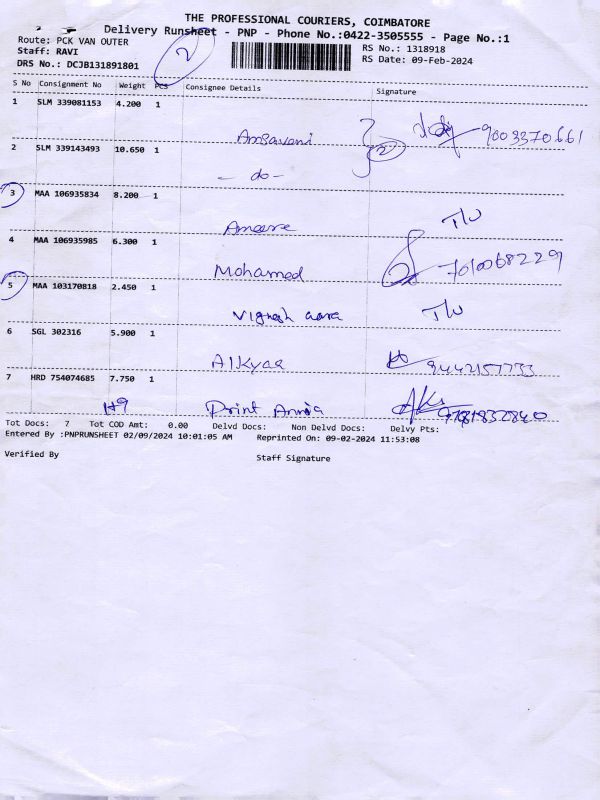 THE PROFESSIONAL COURIERS, COIMBATORE
Delivery Runsheet - PNP - Phone No.:0422-3505555 - Page No.:1
Route: PCK VAN OUTER
2
RS No.: 1318918
Staff: RAVI
RS Date: 09-Feb-2024
DRS No.: DCJB131891801
S No Consignment No Weight Pcs Consignee Details Signature
1 SLM 339081153 4.200 1
Amsaveni 2 9003370661
2 SLM 339143493 10.650 1
- do -
3 MAA 106935834 8.200 1
Ameere T/U
4 MAA 106935985 6.300 1
Mohamed 7010068229
5 MAA 103170818 2.450 1
Vignesh aara T/U
6 SGL 302316 5.900 1
Alkyaa 9442157733
7 HRD 754074685 7.750 1
H9 Print Annia
Tot Docs: 7 Tot COD Amt: 0.00 Delvd Docs: Non Delvd Docs: Delvy Pts:
Entered By :PNPRUNSHEET 02/09/2024 10:01:05 AM Reprinted On: 09-02-2024 11:53:08
Verified By Staff Signature